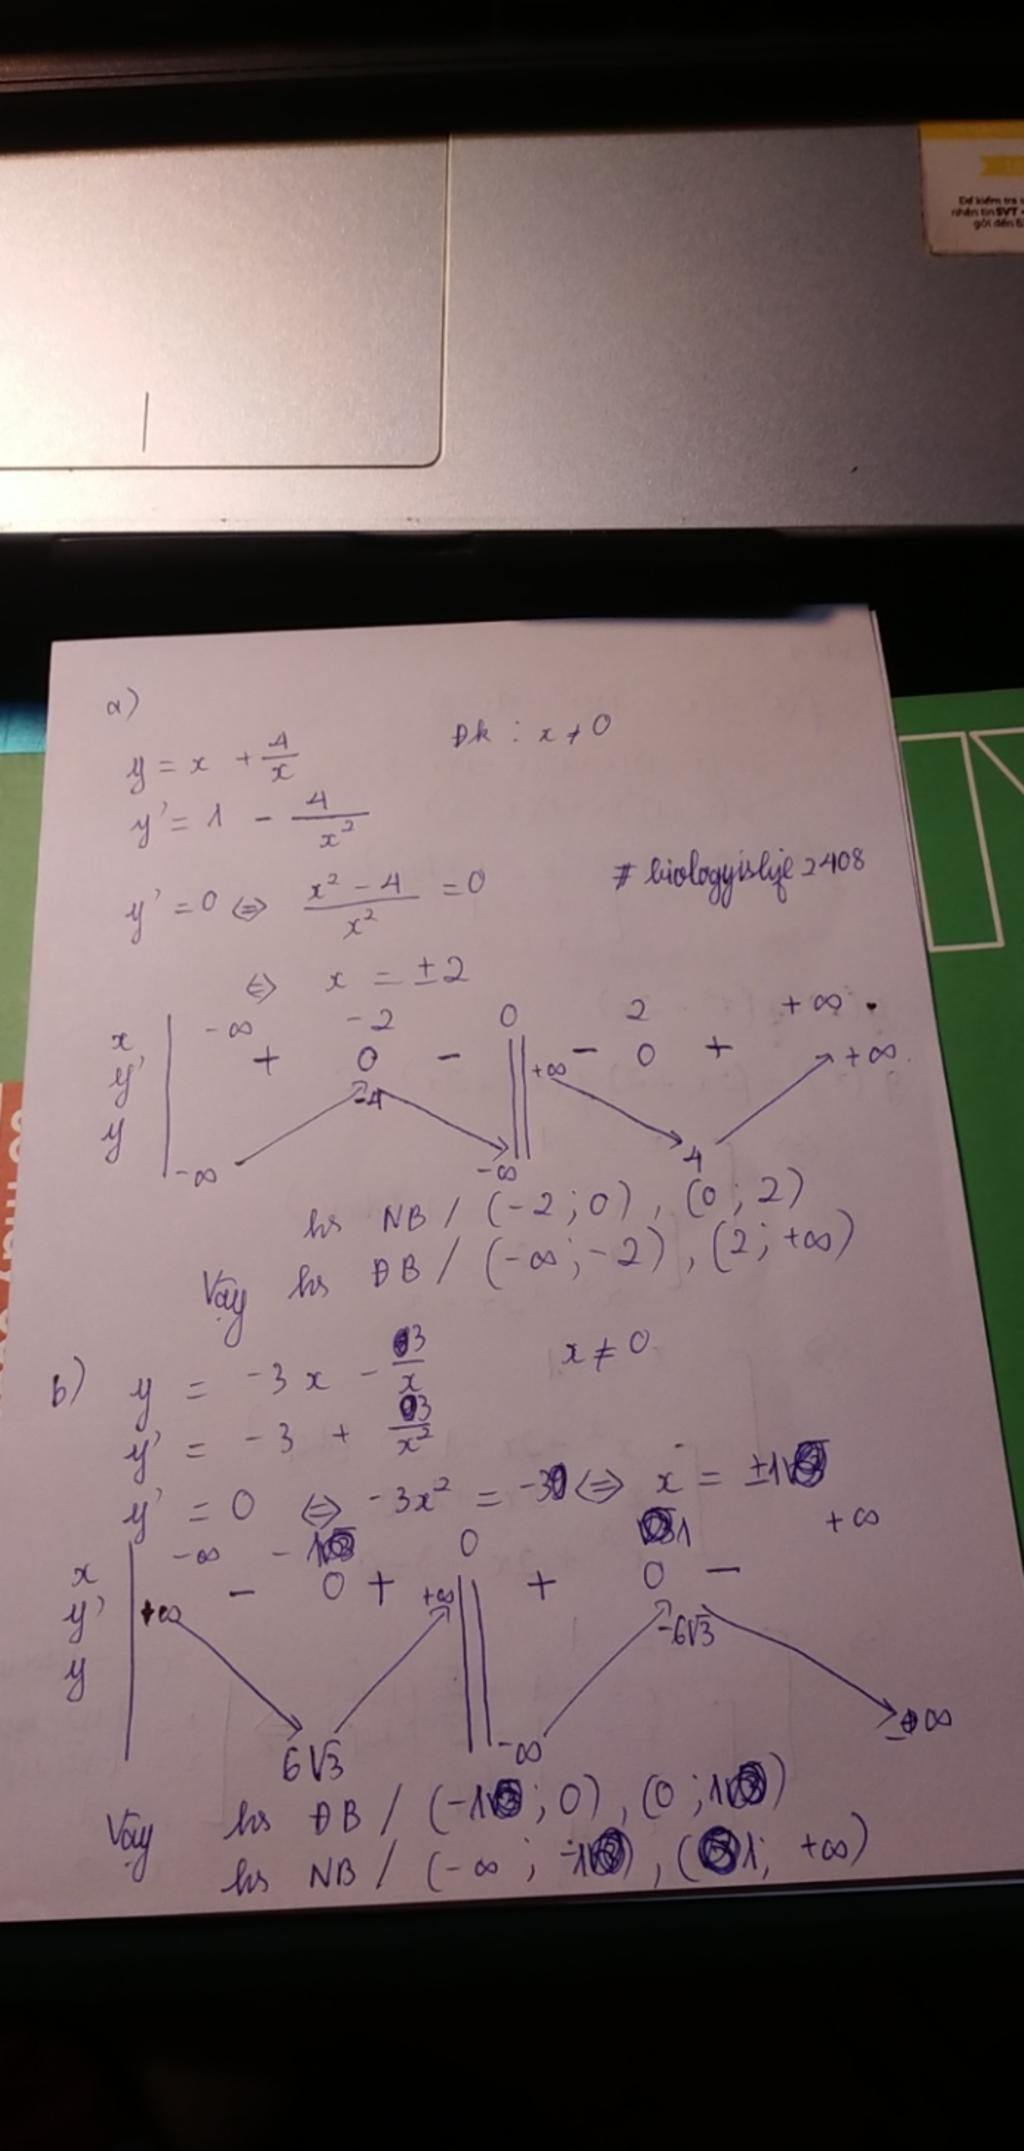 Để kiểm tra
nhắn tin SVT
gởi đến 6
a)
y = x + 4/x Đk : x ≠ 0
y' = 1 - 4/x²
# biologyislife2408
y' = 0 ⇔ (x² - 4)/x² = 0
⇔ x = ±2
x -∞ -2 0 2 +∞
y' + 0 - || - 0 +
y -∞ -4 -∞ || +∞ 4 +∞
hs NB / (-2 ; 0) , (0 ; 2)
Vậy hs ĐB / (-∞ ; -2) , (2 ; +∞)
b) y = -3x - 3/x x ≠ 0
y' = -3 + 3/x²
y' = 0 ⇔ -3x² = -3 ⇔ x = ±1
x -∞ -1 0 1 +∞
y' - 0 + || + 0 -
y +∞ 6√3 +∞ || -∞ -6√3 -∞
Vậy hs ĐB / (-1 ; 0) , (0 ; 1)
hs NB / (-∞ ; -1) , (1 ; +∞)